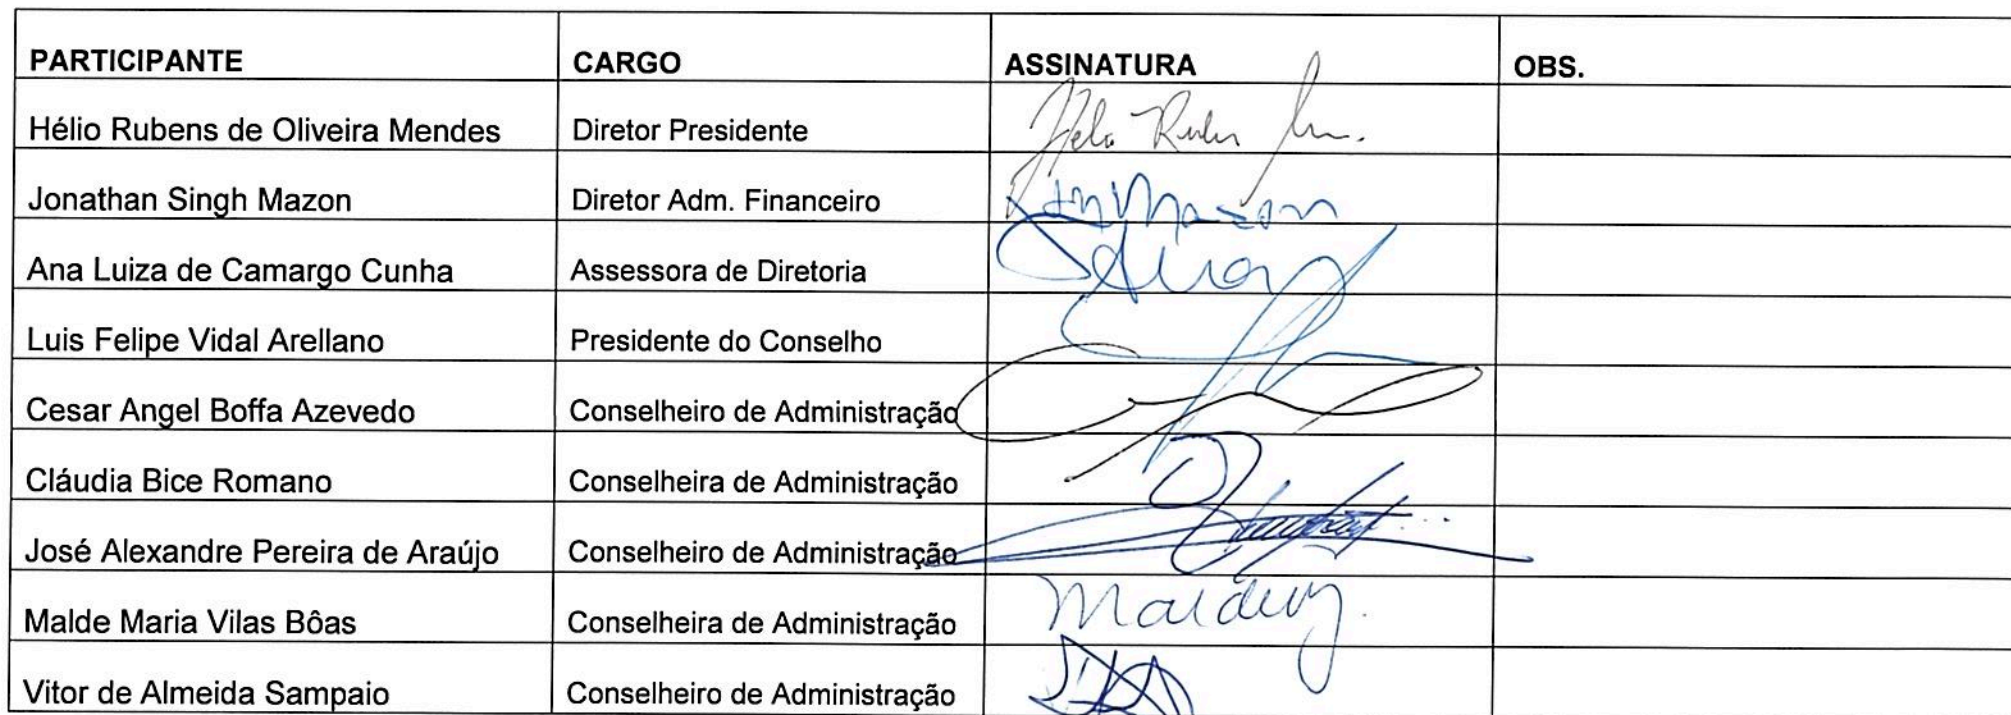 PARTICIPANTE CARGO ASSINATURA OBS.
Hélio Rubens de Oliveira Mendes Diretor Presidente
Jonathan Singh Mazon Diretor Adm. Financeiro
Ana Luiza de Camargo Cunha Assessora de Diretoria
Luis Felipe Vidal Arellano Presidente do Conselho
Cesar Angel Boffa Azevedo Conselheiro de Administração
Cláudia Bice Romano Conselheira de Administração
José Alexandre Pereira de Araújo Conselheiro de Administração
Malde Maria Vilas Bôas Conselheira de Administração
Vitor de Almeida Sampaio Conselheiro de Administração